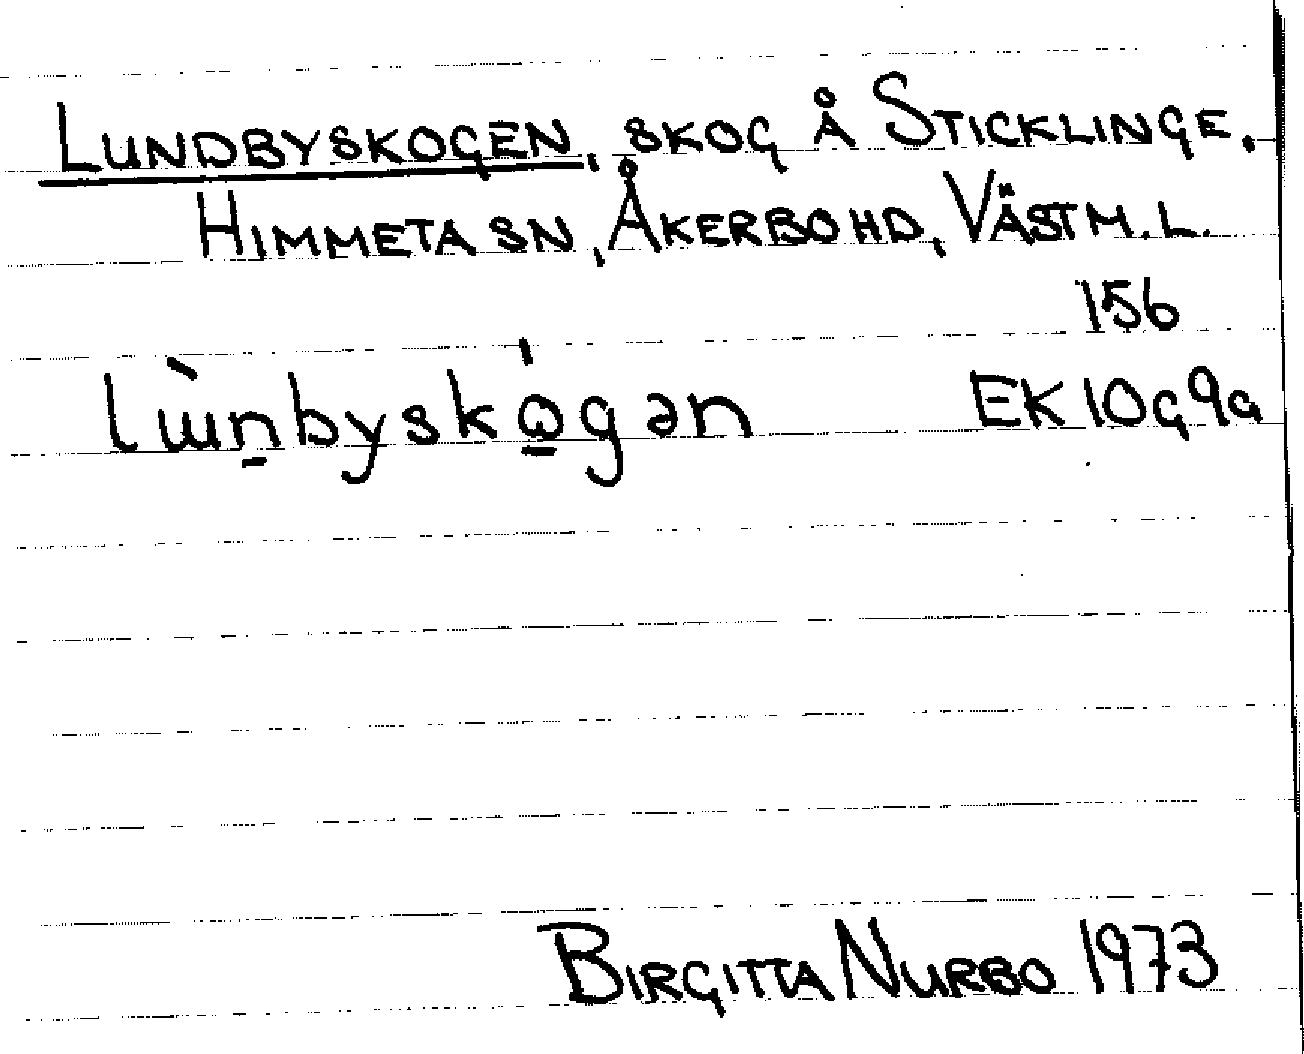 LUNDBYSKOGEN, SKOG Å STICKLINGE,
HIMMETA SN, ÅKERBO HD, VÄSTM. L.
156
lɯ̀n̠byskó̠gən EK 10G9a
BIRGITTA NURBO 1973